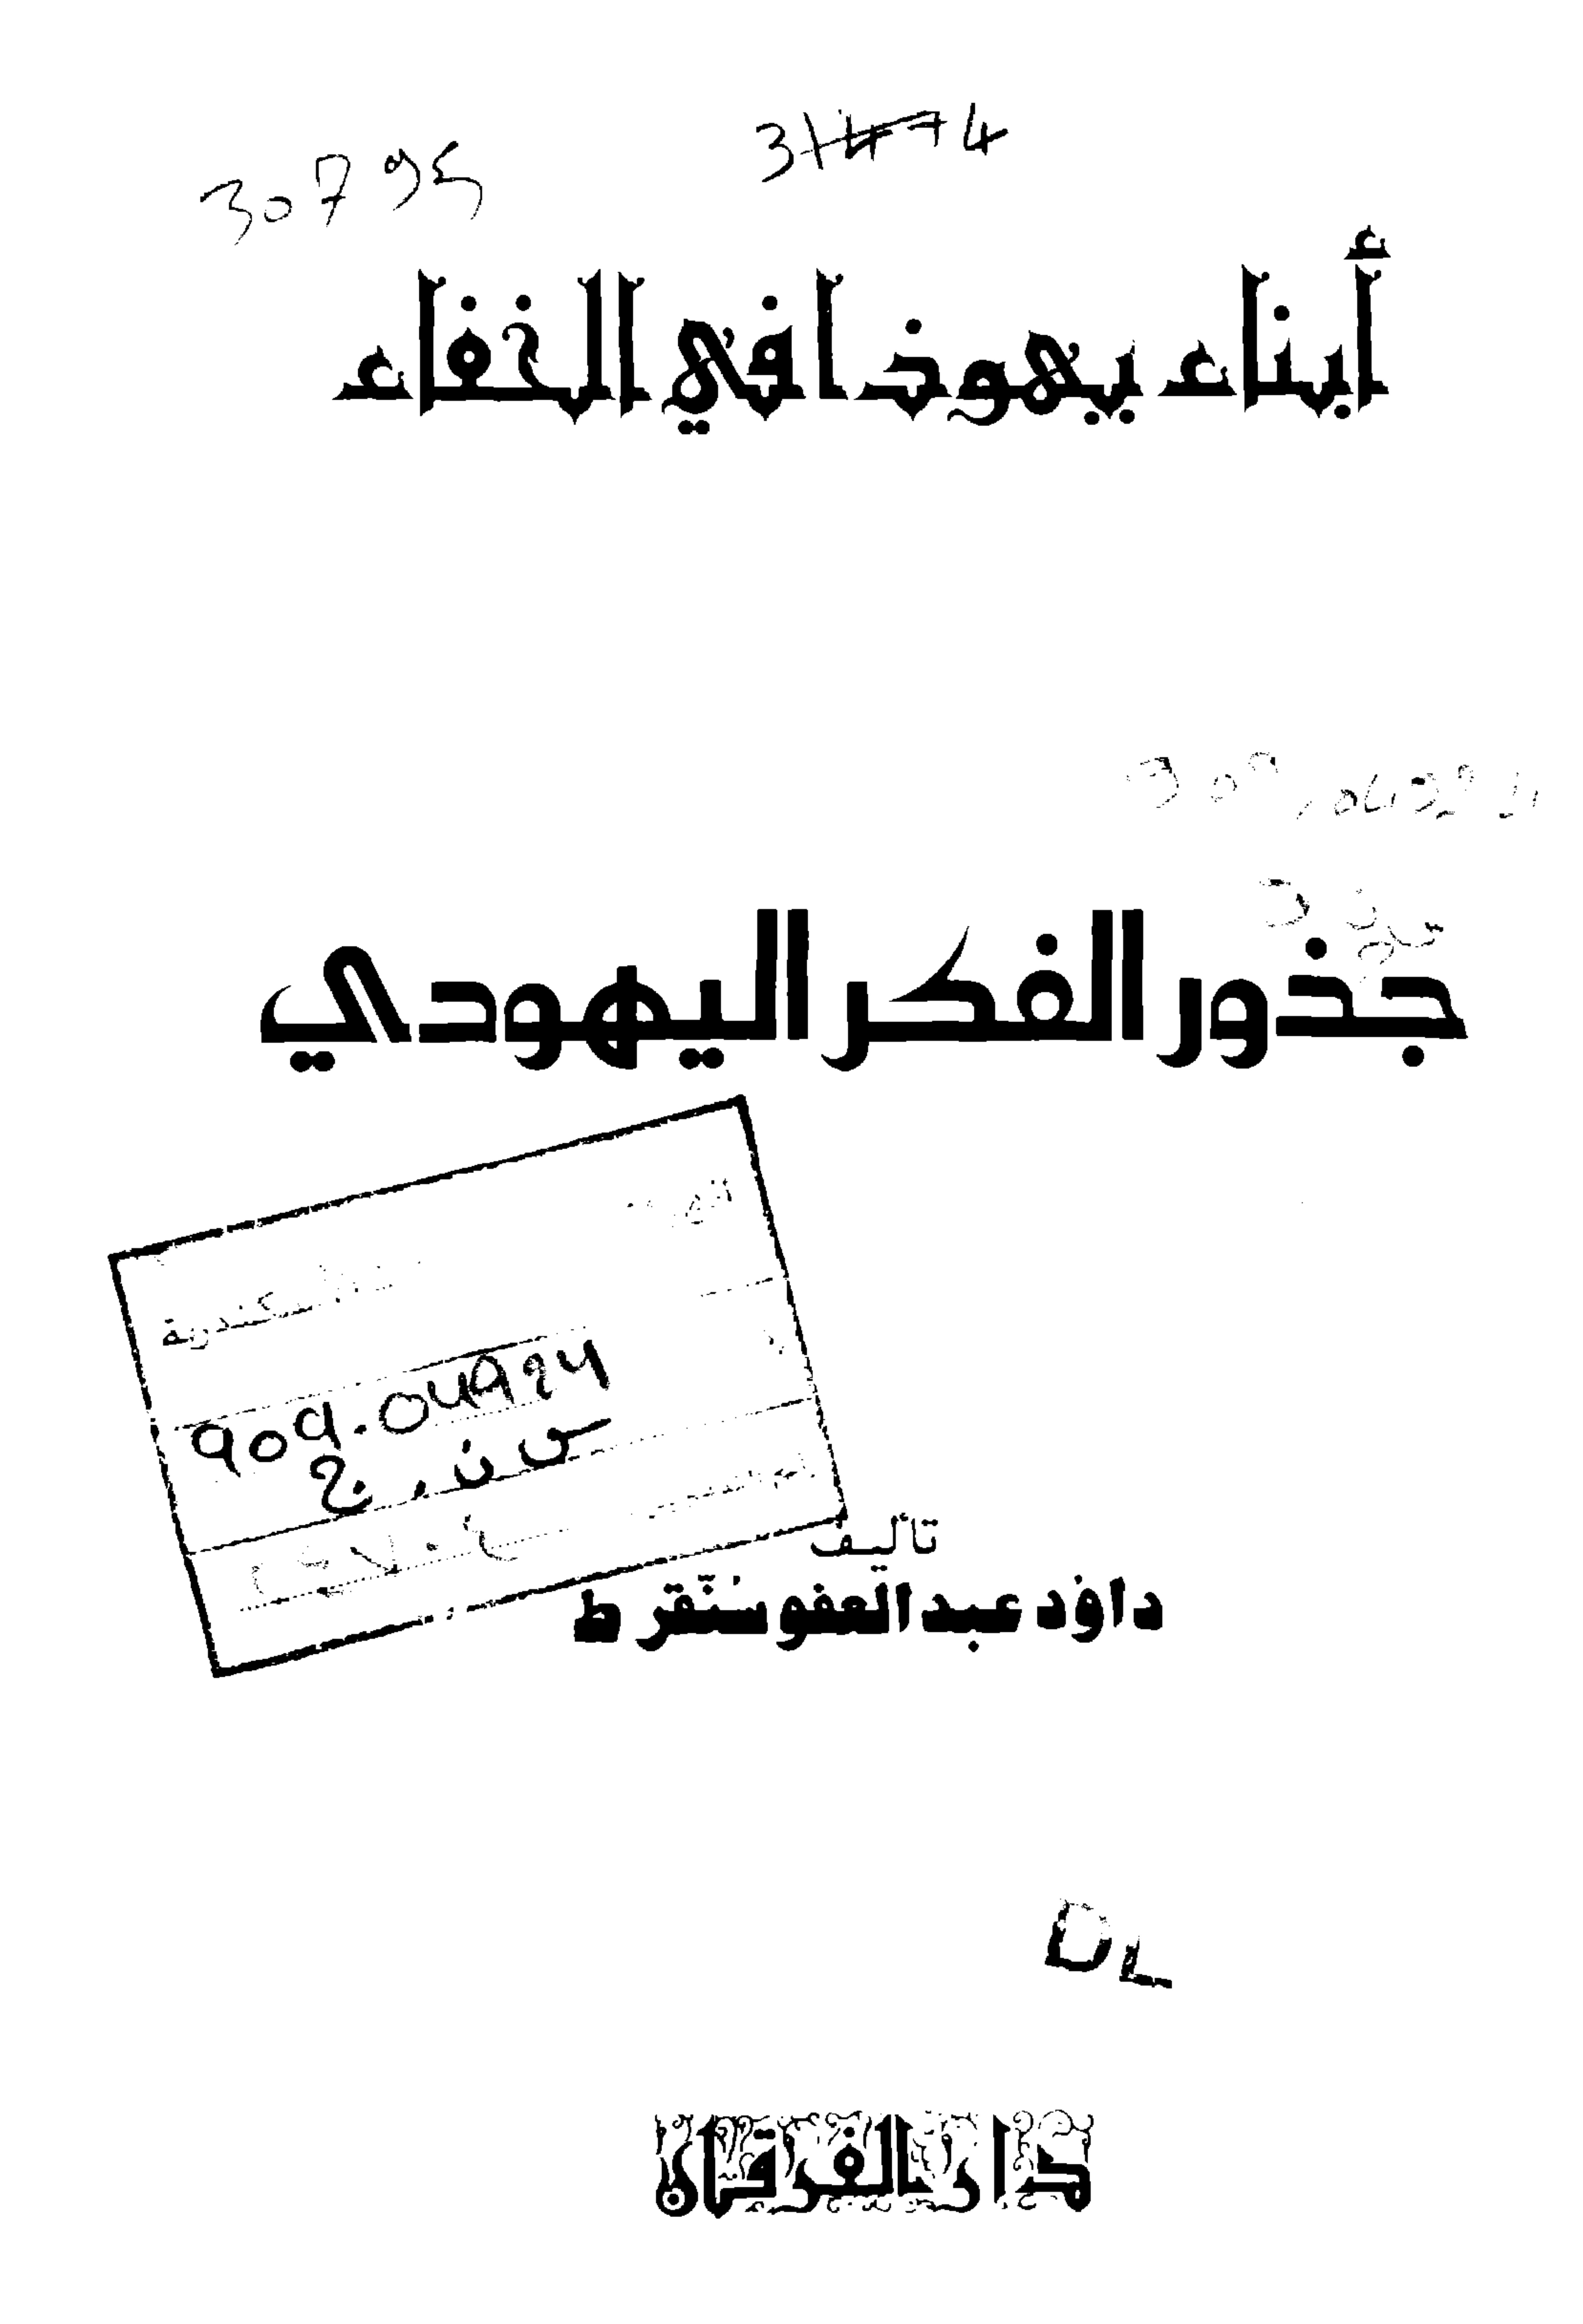 30795
أبناء يهوذا في الخفاء
جذور الفكر اليهودي
909.04924
س ن . ج
تأليف
داوُد عبد العفو سنّقرط
DL
دار الفرقان